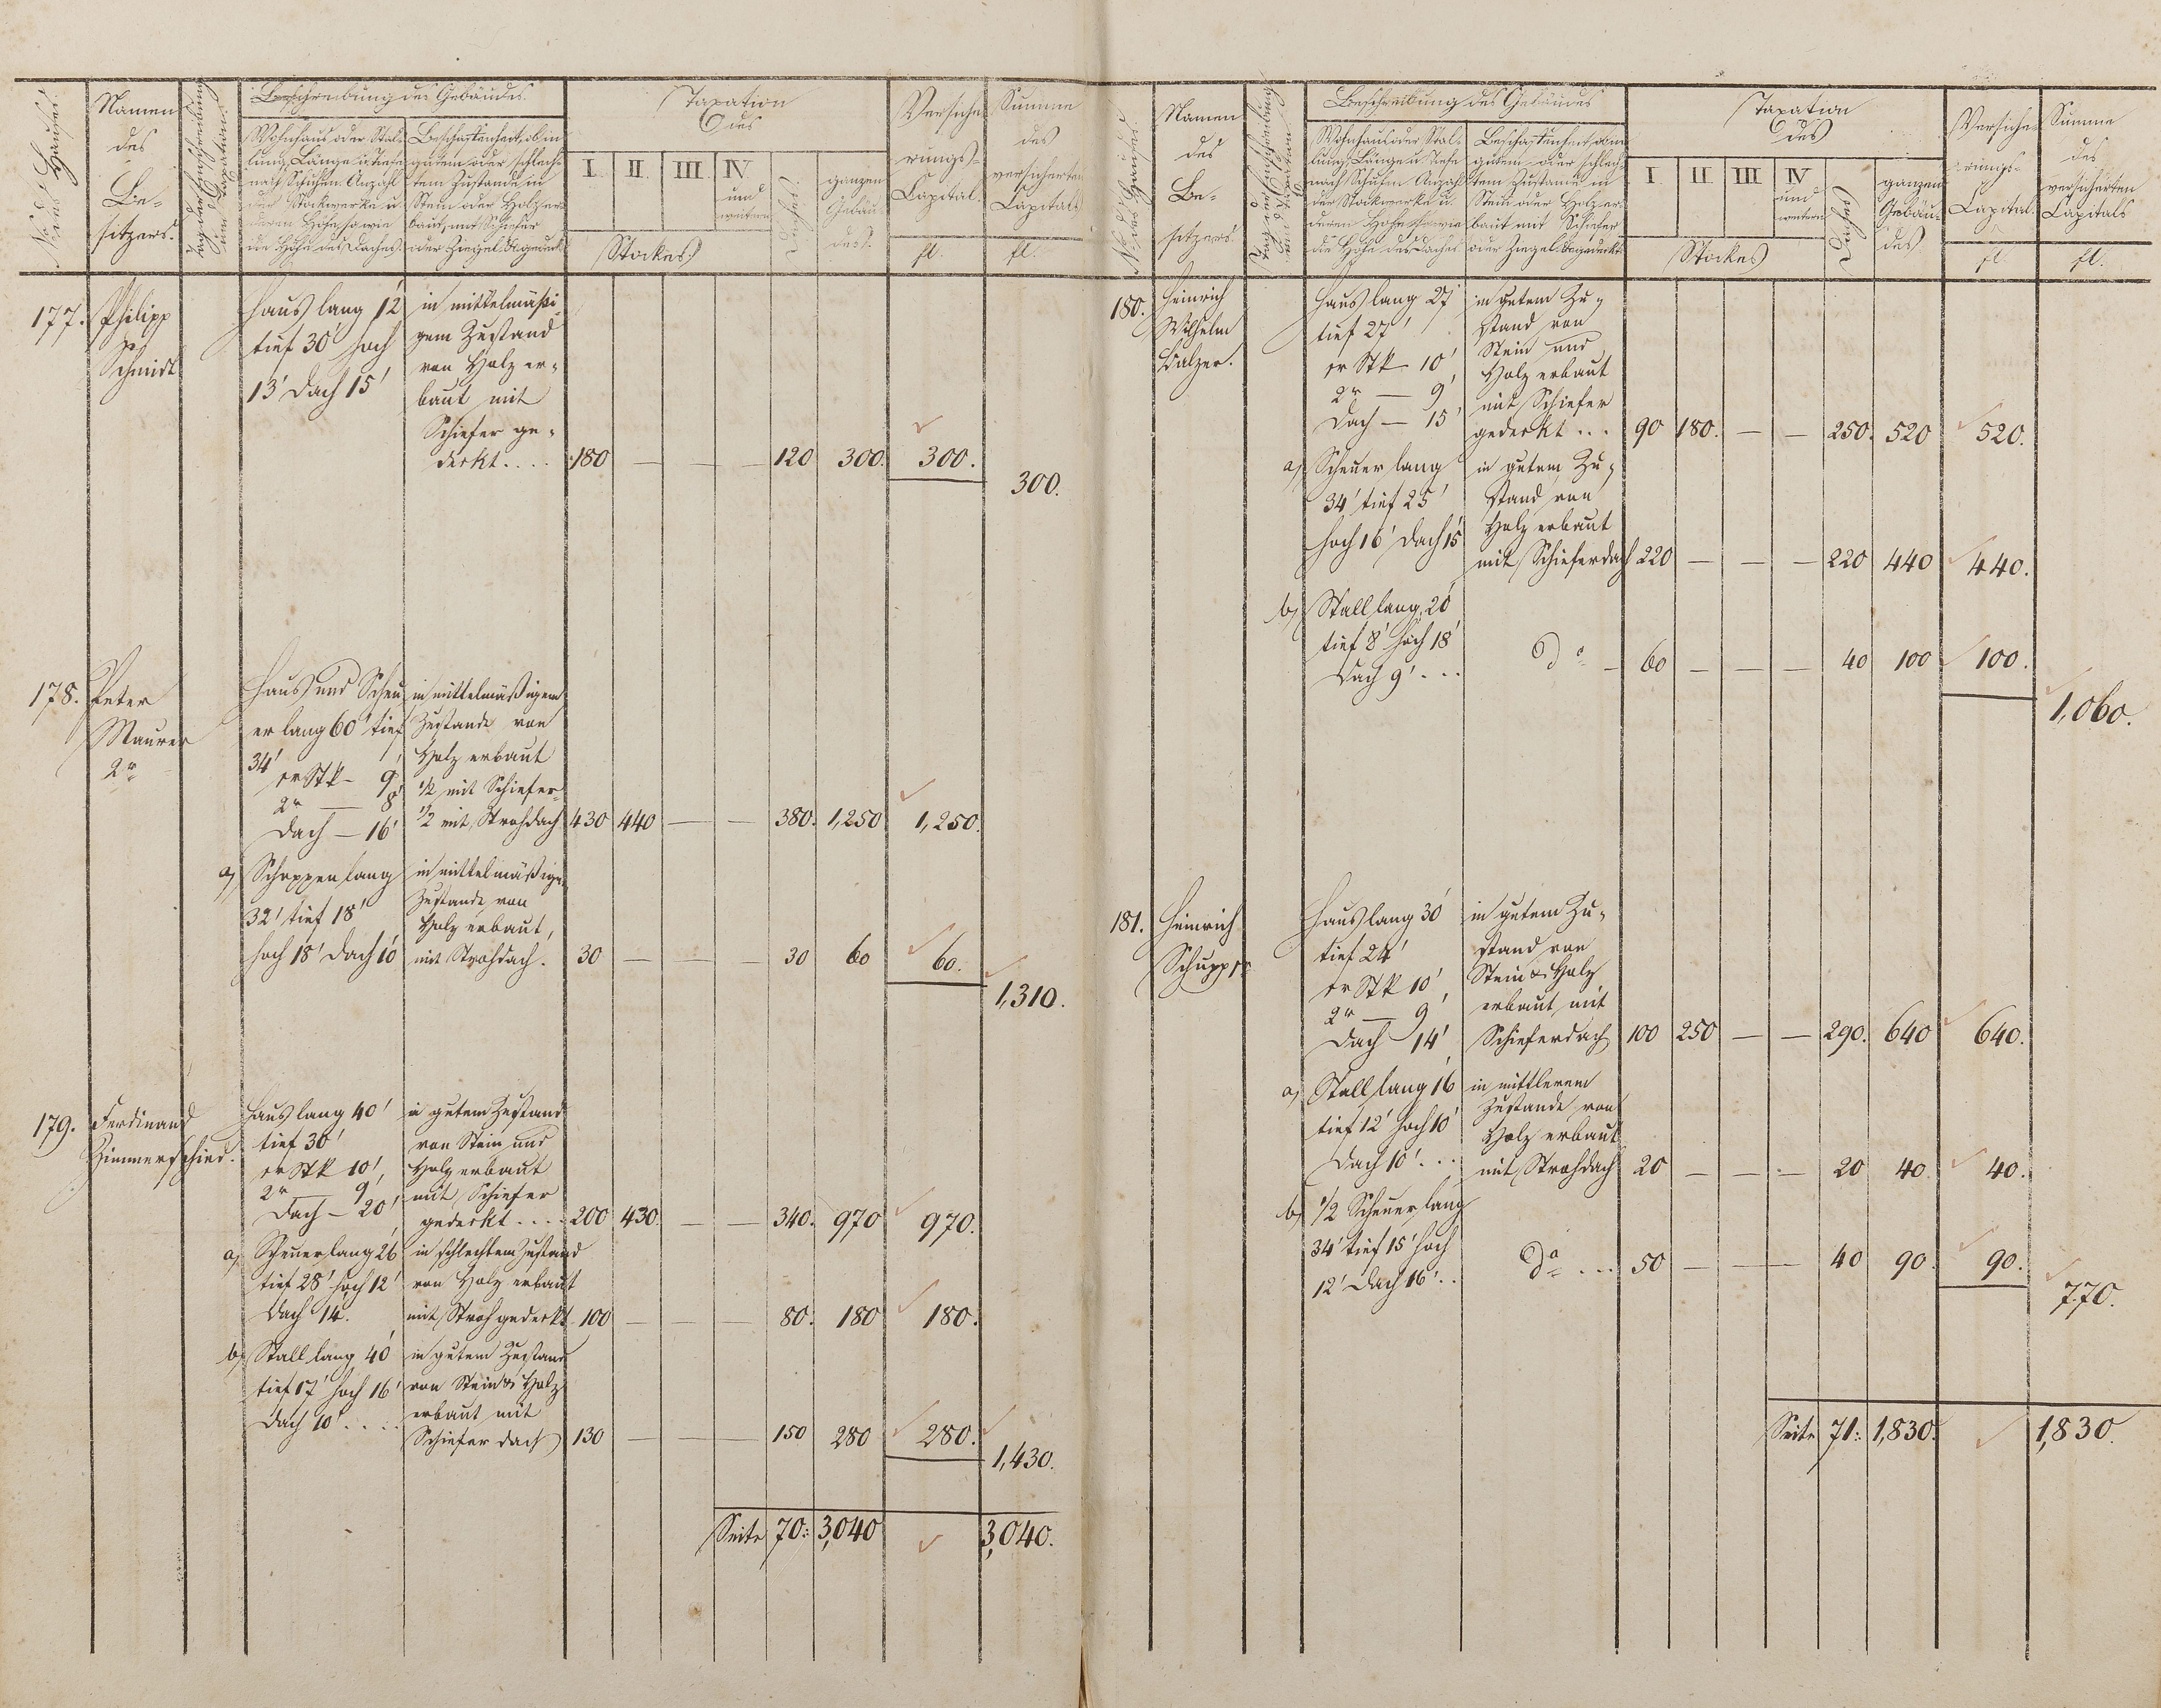 No des Hauses.
Namen
des
Be-
sitzers.
Tag der Einschreibung
und Taxation.
Beschreibung des Gebäudes.
Wohnhaus oder Stal-
lung, Länge u Tiefe
nach Schuhen. Anzahl
der Stockwerke u
deren Höhe sowie
die Höhe des Daches.
Beschaffenheit ob in
gutem oder schlech-
tem Zustande in
Stein oder Holz er-
baut, mit Schiefer
oder Ziegel &c gedeckt
Taxation
des
I. II. III. IV.
und
weitern
Stockes
Daches.
ganzen
Gebäu-
des.
Versiche-
rungs-
Capital.
fl.
Summe
des
versicherten
Capitals
fl.
177. Philipp
Schmidt
Haus lang 12'
tief 30' hoch
13' Dach 15'
in mittelmäßi-
gem Zustand
von Holz er-
baut mit
Schiefer ge-
deckt.... 180 — — — 120 300. 300.
300.
178. Peter
Maurer
2r
Haus und Scheu
er lang 60' tief
34'
er Stk - 9'
2r — 8'
Dach — 16'
in mittelmäßigem
Zustande von
Holz erbaut
1/2 mit Schiefer-
1/2 mit Strohdach 430 440 — — 380. 1,250 1,250.
a) Schoppen lang
32' tief 18'
hoch 18' Dach 10'
in mittelmäßigem
Zustande von
Holz erbaut,
mit Strohdach. 30 — — — 30 60 60.
1,310.
179. Ferdinand
Zimmerschied.
Haus lang 40'
tief 30'
er Stk 10'
2r — 9'
Dach — 20'
in gutem Zustand
von Stein und
Holz erbaut
mit Schiefer
gedeckt.... 200 430. — — 340. 970 970.
a) Scheuer lang 26'
tief 28' hoch 12'
Dach 14.
in schlechtem Zustand
von Holz erbaut
mit Stroh gedeckt 100 — — — 80. 180 180.
b) Stall lang 40'
tief 17' hoch 16'
Dach 10'....
in gutem Zustand
von Stein & Holz
erbaut mit
Schiefer dach 130 — — — 150 280 280.
1,430.
Seite 70: 3,040 3,040.
No des Hauses.
Namen
des
Be-
sitzers.
Tag der Einschreibung
und Taxation
Beschreibung des Gebäudes
Wohnhaus oder Stal-
lung, Länge u Tiefe
nach Schuhen Anzahl
der Stockwerke u.
deren Höhe sowie
die Höhe des Daches
Beschaffenheit ob in
gutem oder schlech-
tem Zustande in
Stein oder Holz er-
baut mit Schiefer
oder Ziegel &c gedeckt
Taxation
des
I II III IV
und
weitern
Stockes
Daches
ganzen
Gebäu-
des
Versiche-
rungs-
Capital.
fl
Summe
des
versicherten
Capitals
fl.
180. Heinrich
Wilhelm
Balzer.
Haus lang 27'
tief 27'
er Stk 10'
2r — 9'
Dach — 15'
in gutem Zu-
stand von
Stein und
Holz erbaut
mit Schiefer
gedeckt... 90 180. — — 250. 520 520.
a) Scheuer lang
34' tief 25'
hoch 16' Dach 15'
in gutem Zu-
stand von
Holz erbaut
mit Schieferdach 220 — — — 220 440 440.
b) Stall lang 20'
tief 8' hoch 18'
Dach 9'...
do — 60 — — — 40 100 100.
1,060.
181. Heinrich
Schupp
Haus lang 30'
tief 24'
er Stk 10'
2r — 9'
Dach 14'
in gutem Zu-
stand von
Stein & Holz
erbaut mit
Schieferdach 100 250 — — 290. 640 640.
a) Stall lang 16'
tief 12' hoch 10'
Dach 10'...
in mittlerem
Zustande von
Holz erbaut
mit Strohdach 20 — — — 20 40 40.
b) 1/2 Scheuer lang
34' tief 15' hoch
12' Dach 16'..
do ... 50 — — — 40 90. 90.
770.
Seite 71: 1,830. 1,830.